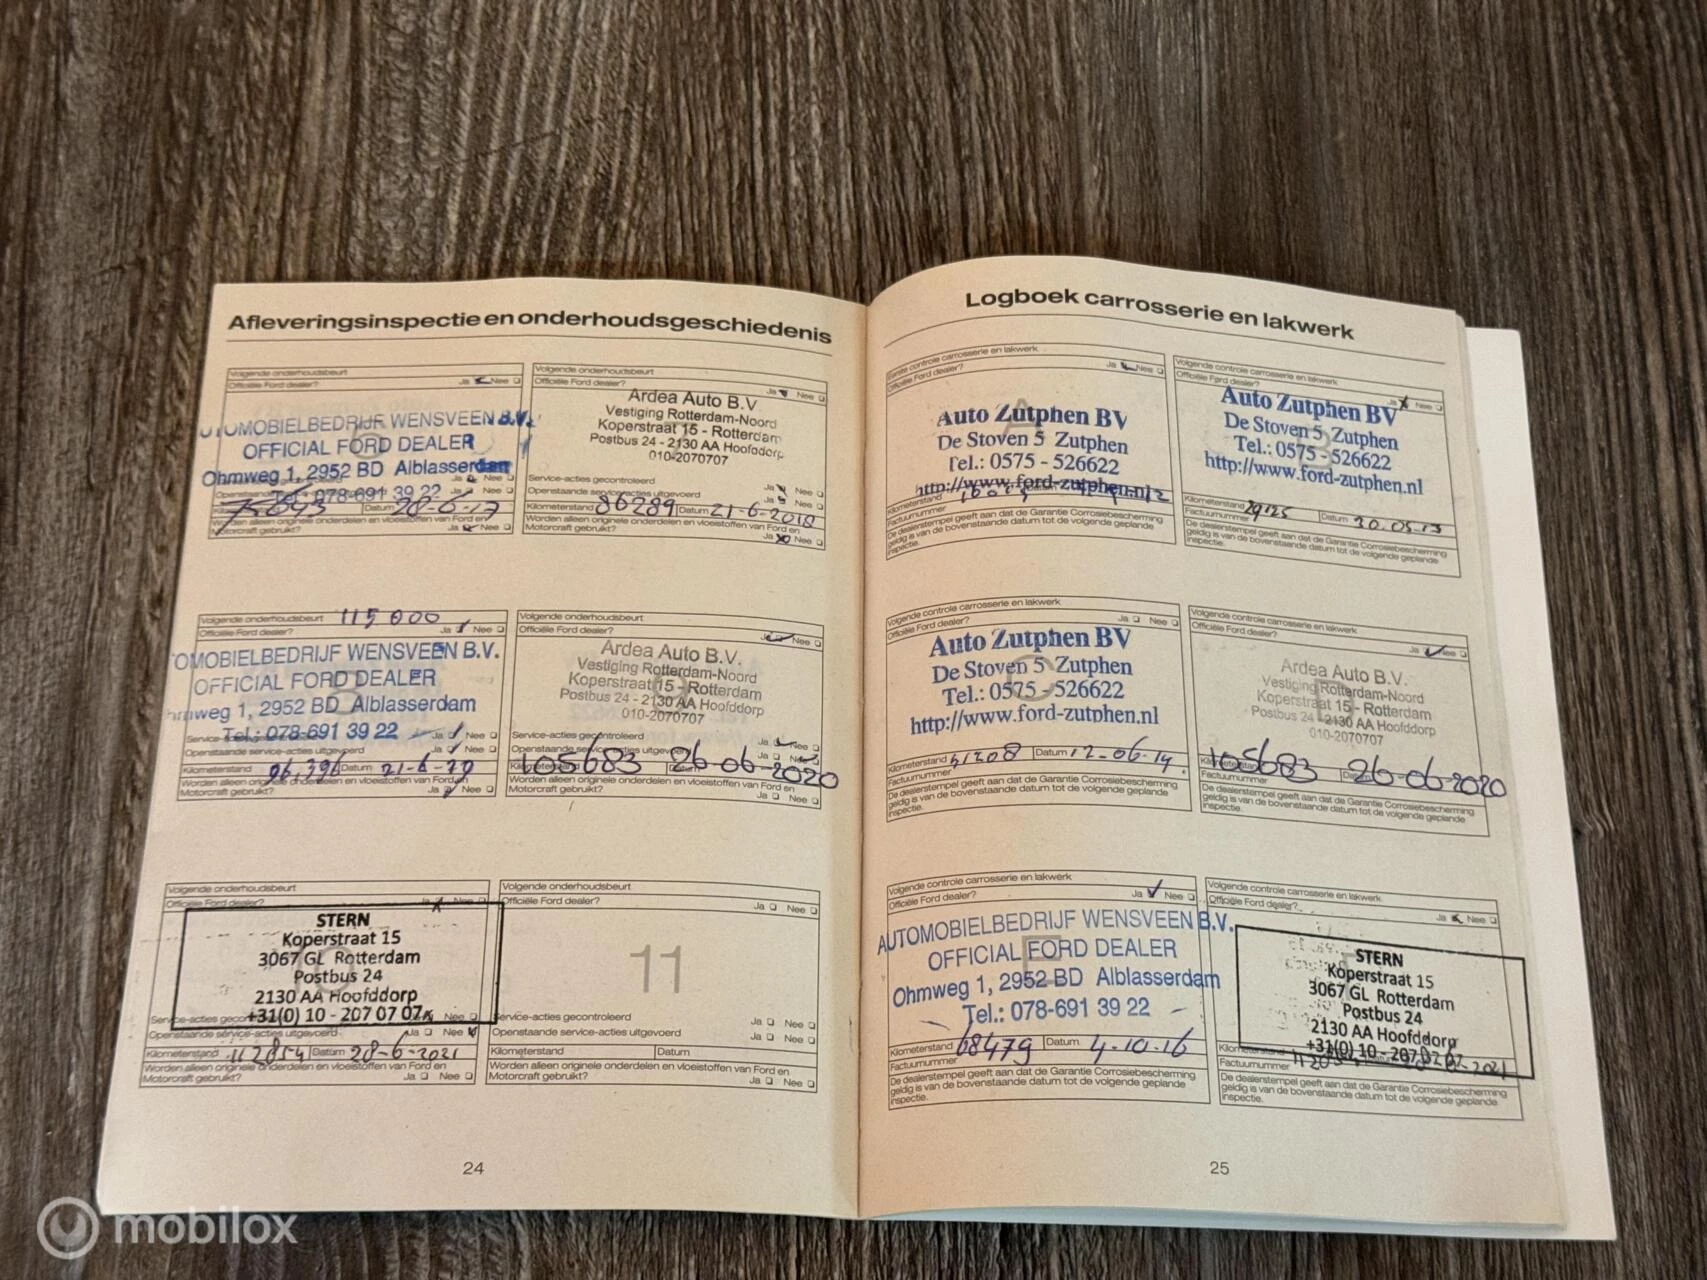 Afleveringsinspectie en onderhoudsgeschiedenis
Volgende onderhoudsbeurt
Officiële Ford dealer? Ja Nee
OMOBIELBEDRIJF WENSVEEN B.V.
OFFICIAL FORD DEALER
Ohmweg 1, 2952 BD Alblasserdam
Ja Nee
Tel.: 078-691 39 22 Ja Nee
Datum 28-6-17
Worden alleen originele onderdelen en vloeistoffen van Ford en
Motorcraft gebruikt? Ja Nee
Volgende onderhoudsbeurt
Officiële Ford dealer? Ja Nee
Ardea Auto B.V.
Vestiging Rotterdam-Noord
Koperstraat 15 - Rotterdam
Postbus 24 - 2130 AA Hoofddorp
010-2070707
Service-acties gecontroleerd Ja Nee
Openstaande service-acties uitgevoerd Ja Nee
Kilometerstand 86289 Datum 21-6-2018
Worden alleen originele onderdelen en vloeistoffen van Ford en
Motorcraft gebruikt? Ja Nee
Volgende onderhoudsbeurt 115000
Officiële Ford dealer? Ja Nee
OMOBIELBEDRIJF WENSVEEN B.V.
OFFICIAL FORD DEALER
mweg 1, 2952 BD Alblasserdam
8
Tel.: 078-691 39 22 Ja Nee
Openstaande service-acties uitgevoerd Ja Nee
Kilometerstand 96.396 Datum
Worden alleen originele onderdelen en vloeistoffen van Ford en
Motorcraft gebruikt? Ja Nee
Volgende onderhoudsbeurt
Officiële Ford dealer? Ja Nee
Ardea Auto B.V.
Vestiging Rotterdam-Noord
Koperstraat 15 - Rotterdam
Postbus 24 - 2130 AA Hoofddorp
010-2070707
9
Service-acties gecontroleerd Ja Nee
Openstaande service-acties uitgevoerd Ja Nee
105683 26-06-2020
Worden alleen originele onderdelen en vloeistoffen van Ford en
Motorcraft gebruikt? Ja Nee
Volgende onderhoudsbeurt
Officiële Ford dealer? Ja Nee
STERN
Koperstraat 15
3067 GL Rotterdam
Postbus 24
2130 AA Hoofddorp
+31(0) 10 - 207 07 07
10
Nee
Openstaande service-acties uitgevoerd Ja Nee
Kilometerstand 112854 Datum 28-6-2021
Worden alleen originele onderdelen en vloeistoffen van Ford en
Motorcraft gebruikt? Ja Nee
Volgende onderhoudsbeurt
Officiële Ford dealer? Ja Nee
11
Service-acties gecontroleerd Ja Nee
Openstaande service-acties uitgevoerd Ja Nee
Kilometerstand Datum
Worden alleen originele onderdelen en vloeistoffen van Ford en
Motorcraft gebruikt? Ja Nee
24
Logboek carrosserie en lakwerk
Eerste controle carrosserie en lakwerk
Officiële Ford dealer? Ja Nee
A
Auto Zutphen BV
De Stoven 5 Zutphen
Tel.: 0575 - 526622
http://www.ford-zutphen.nl
Kilometerstand
Factuurnummer
De dealerstempel geeft aan dat de Garantie Corrosiebescherming
geldig is van de bovenstaande datum tot de volgende geplande
inspectie.
Volgende controle carrosserie en lakwerk
Officiële Ford dealer? Ja Nee
B
Auto Zutphen BV
De Stoven 5 Zutphen
Tel.: 0575 - 526622
http://www.ford-zutphen.nl
Kilometerstand 29125 Datum 30.05.13
Factuurnummer
De dealerstempel geeft aan dat de Garantie Corrosiebescherming
geldig is van de bovenstaande datum tot de volgende geplande
inspectie.
Volgende controle carrosserie en lakwerk
Officiële Ford dealer? Ja Nee
C
Auto Zutphen BV
De Stoven 5 Zutphen
Tel.: 0575 - 526622
http://www.ford-zutphen.nl
Kilometerstand 41208 Datum 12-06-14
Factuurnummer
De dealerstempel geeft aan dat de Garantie Corrosiebescherming
geldig is van de bovenstaande datum tot de volgende geplande
inspectie.
Volgende controle carrosserie en lakwerk
Officiële Ford dealer? Ja Nee
D
Ardea Auto B.V.
Vestiging Rotterdam-Noord
Koperstraat 15 - Rotterdam
Postbus 24 - 2130 AA Hoofddorp
010-2070707
105683 26-06-2020
Factuurnummer
De dealerstempel geeft aan dat de Garantie Corrosiebescherming
geldig is van de bovenstaande datum tot de volgende geplande
inspectie.
Volgende controle carrosserie en lakwerk
Officiële Ford dealer? Ja Nee
E
AUTOMOBIELBEDRIJF WENSVEEN B.V.
OFFICIAL FORD DEALER
Ohmweg 1, 2952 BD Alblasserdam
Tel.: 078-691 39 22
Kilometerstand 68479 Datum 4-10-16
Factuurnummer
De dealerstempel geeft aan dat de Garantie Corrosiebescherming
geldig is van de bovenstaande datum tot de volgende geplande
inspectie.
Volgende controle carrosserie en lakwerk
Officiële Ford dealer? Ja Nee
STERN
Koperstraat 15
3067 GL Rotterdam
Postbus 24
2130 AA Hoofddorp
+31(0) 10 - 207 07 07
Factuurnummer
De dealerstempel geeft aan dat de Garantie Corrosiebescherming
geldig is van de bovenstaande datum tot de volgende geplande
inspectie.
25
mobilox